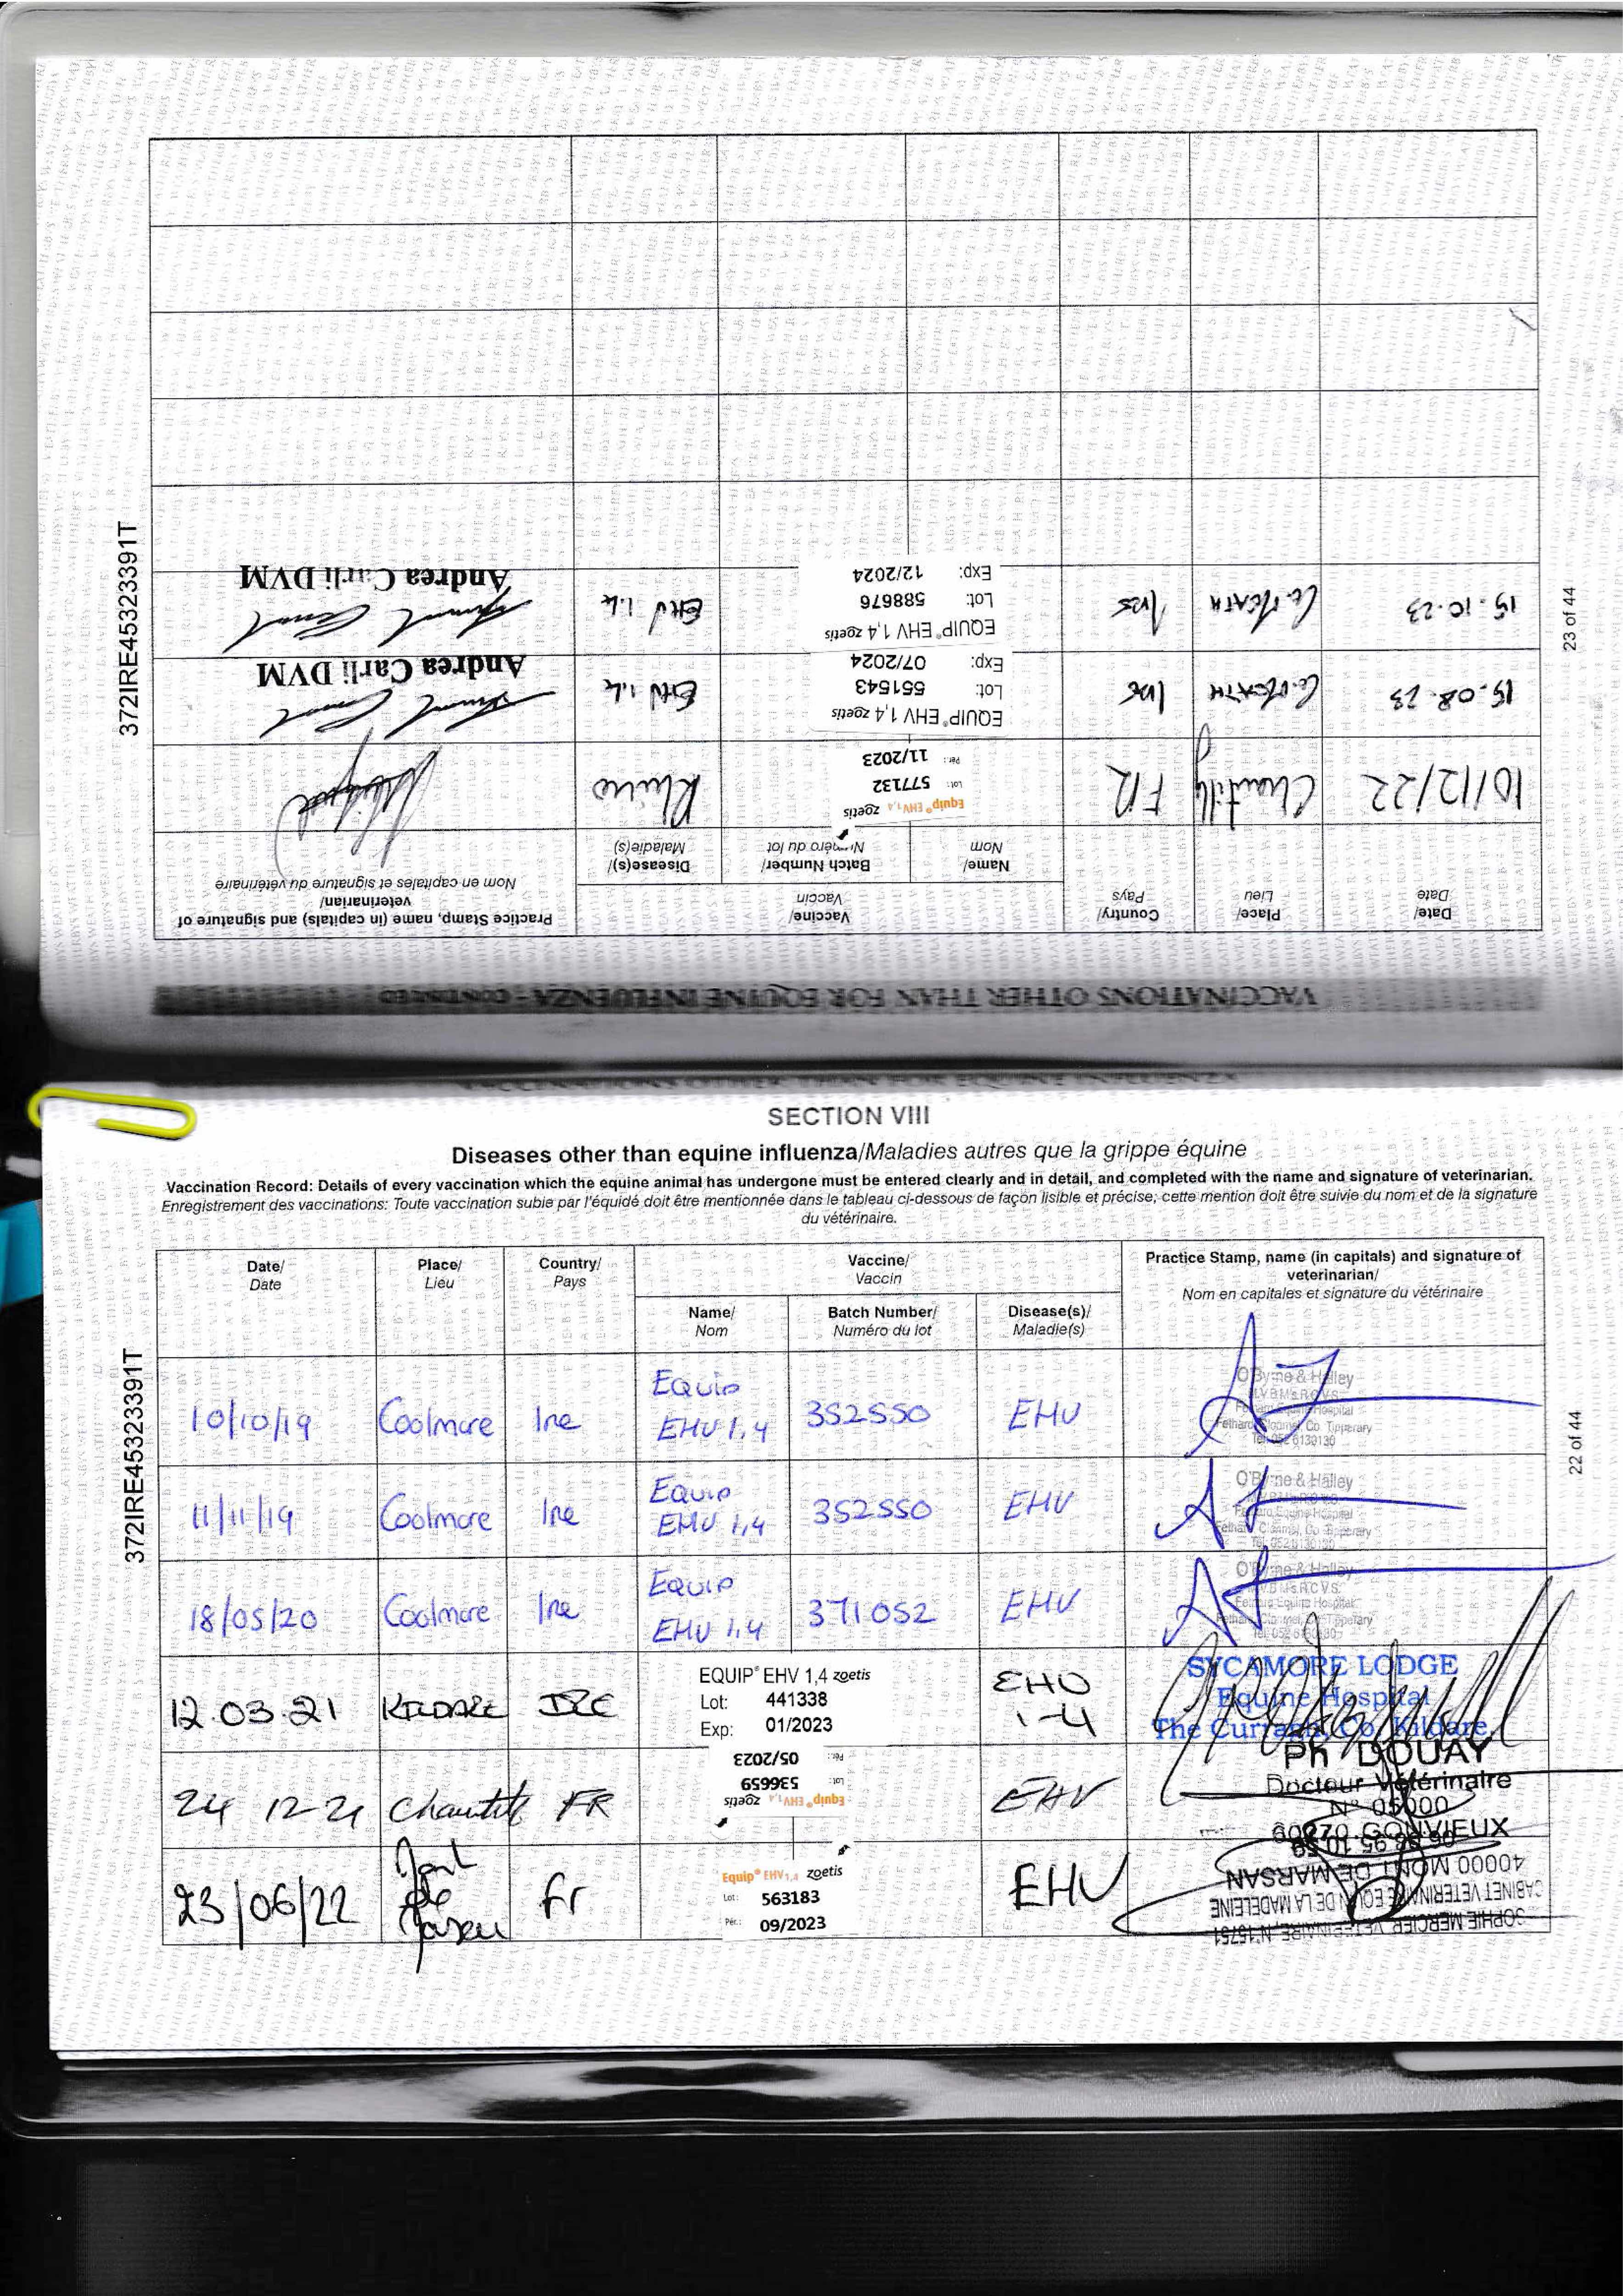 VACCINATIONS OTHER THAN FOR EQUINE INFLUENZA - CONTINUED
Date/ Date
Place/ Lieu
Country/ Pays
Vaccine/ Vaccin
Name/ Nom
Batch Number/ Numéro du lot
Diseases(s)/ Maladie(s)
Practice Stamp, name (in capitals) and signature of
veterinarian/
Nom en capitales et signature du vétérinaire
10/12/22 Chantilly FR Equip® EHV 1,4 zoetis Rhino
Lot: 577132
Per.: 11/2023
15.08.23 Co. MEATH IRE EQUIP® EHV 1,4 zoetis EHV 1.4
Lot: 551543
Exp: 07/2024
Andrea Carli DVM
15.10.23 Co. MEATH IRE EQUIP® EHV 1,4 zoetis EHV 1.4
Lot: 588676
Exp: 12/2024
Andrea Carli DVM
372IRE45323391T
23 of 44
SECTION VIII
Diseases other than equine influenza/Maladies autres que la grippe équine
Vaccination Record: Details of every vaccination which the equine animal has undergone must be entered clearly and in detail, and completed with the name and signature of veterinarian.
Enregistrement des vaccinations: Toute vaccination subie par l'équidé doit être mentionnée dans le tableau ci-dessous de façon lisible et précise; cette mention doit être suivie du nom et de la signature
du vétérinaire.
Date/ Date
Place/ Lieu
Country/ Pays
Vaccine/ Vaccin
Name/ Nom
Batch Number/ Numéro du lot
Disease(s)/ Maladie(s)
Practice Stamp, name (in capitals) and signature of
veterinarian/
Nom en capitales et signature du vétérinaire
10/10/19 Coolmore Ire Equip EHV 1,4 352550 EHV
O'Byrne & Halley
Fethard, Clonmel, Co. Tipperary
Tel: 052 6130130
11/11/19 Coolmore Ire Equip EHV 1,4 352550 EHV
O'Byrne & Halley
18/05/20 Coolmore Ire Equip EHV 1,4 371052 EHV
O'Byrne & Halley
12.03.21 KILDARE IRE EQUIP® EHV 1,4 zoetis EHV 1-4
Lot: 441338
Exp: 01/2023
SYCAMORE LODGE
Equine Hospital
The Curragh, Co. Kildare
24 12-21 Chantilly FR Equip® EHV 1,4 zoetis EHV
Lot: 536659
Pér.: 05/2023
Ph DOUAY
Docteur Vétérinaire
N° 05000
60270 GOUVIEUX
23/06/22 Mont de Marsan Fr Equip® EHV 1,4 zoetis EHV
Lot: 563183
Pér.: 09/2023
SOPHIE MERCIER VETERINAIRE, N°15751
CABINET VETERINAIRE EQUIN DE LA MADELEINE
40000 MONT DE MARSAN
372IRE45323391T
22 of 44